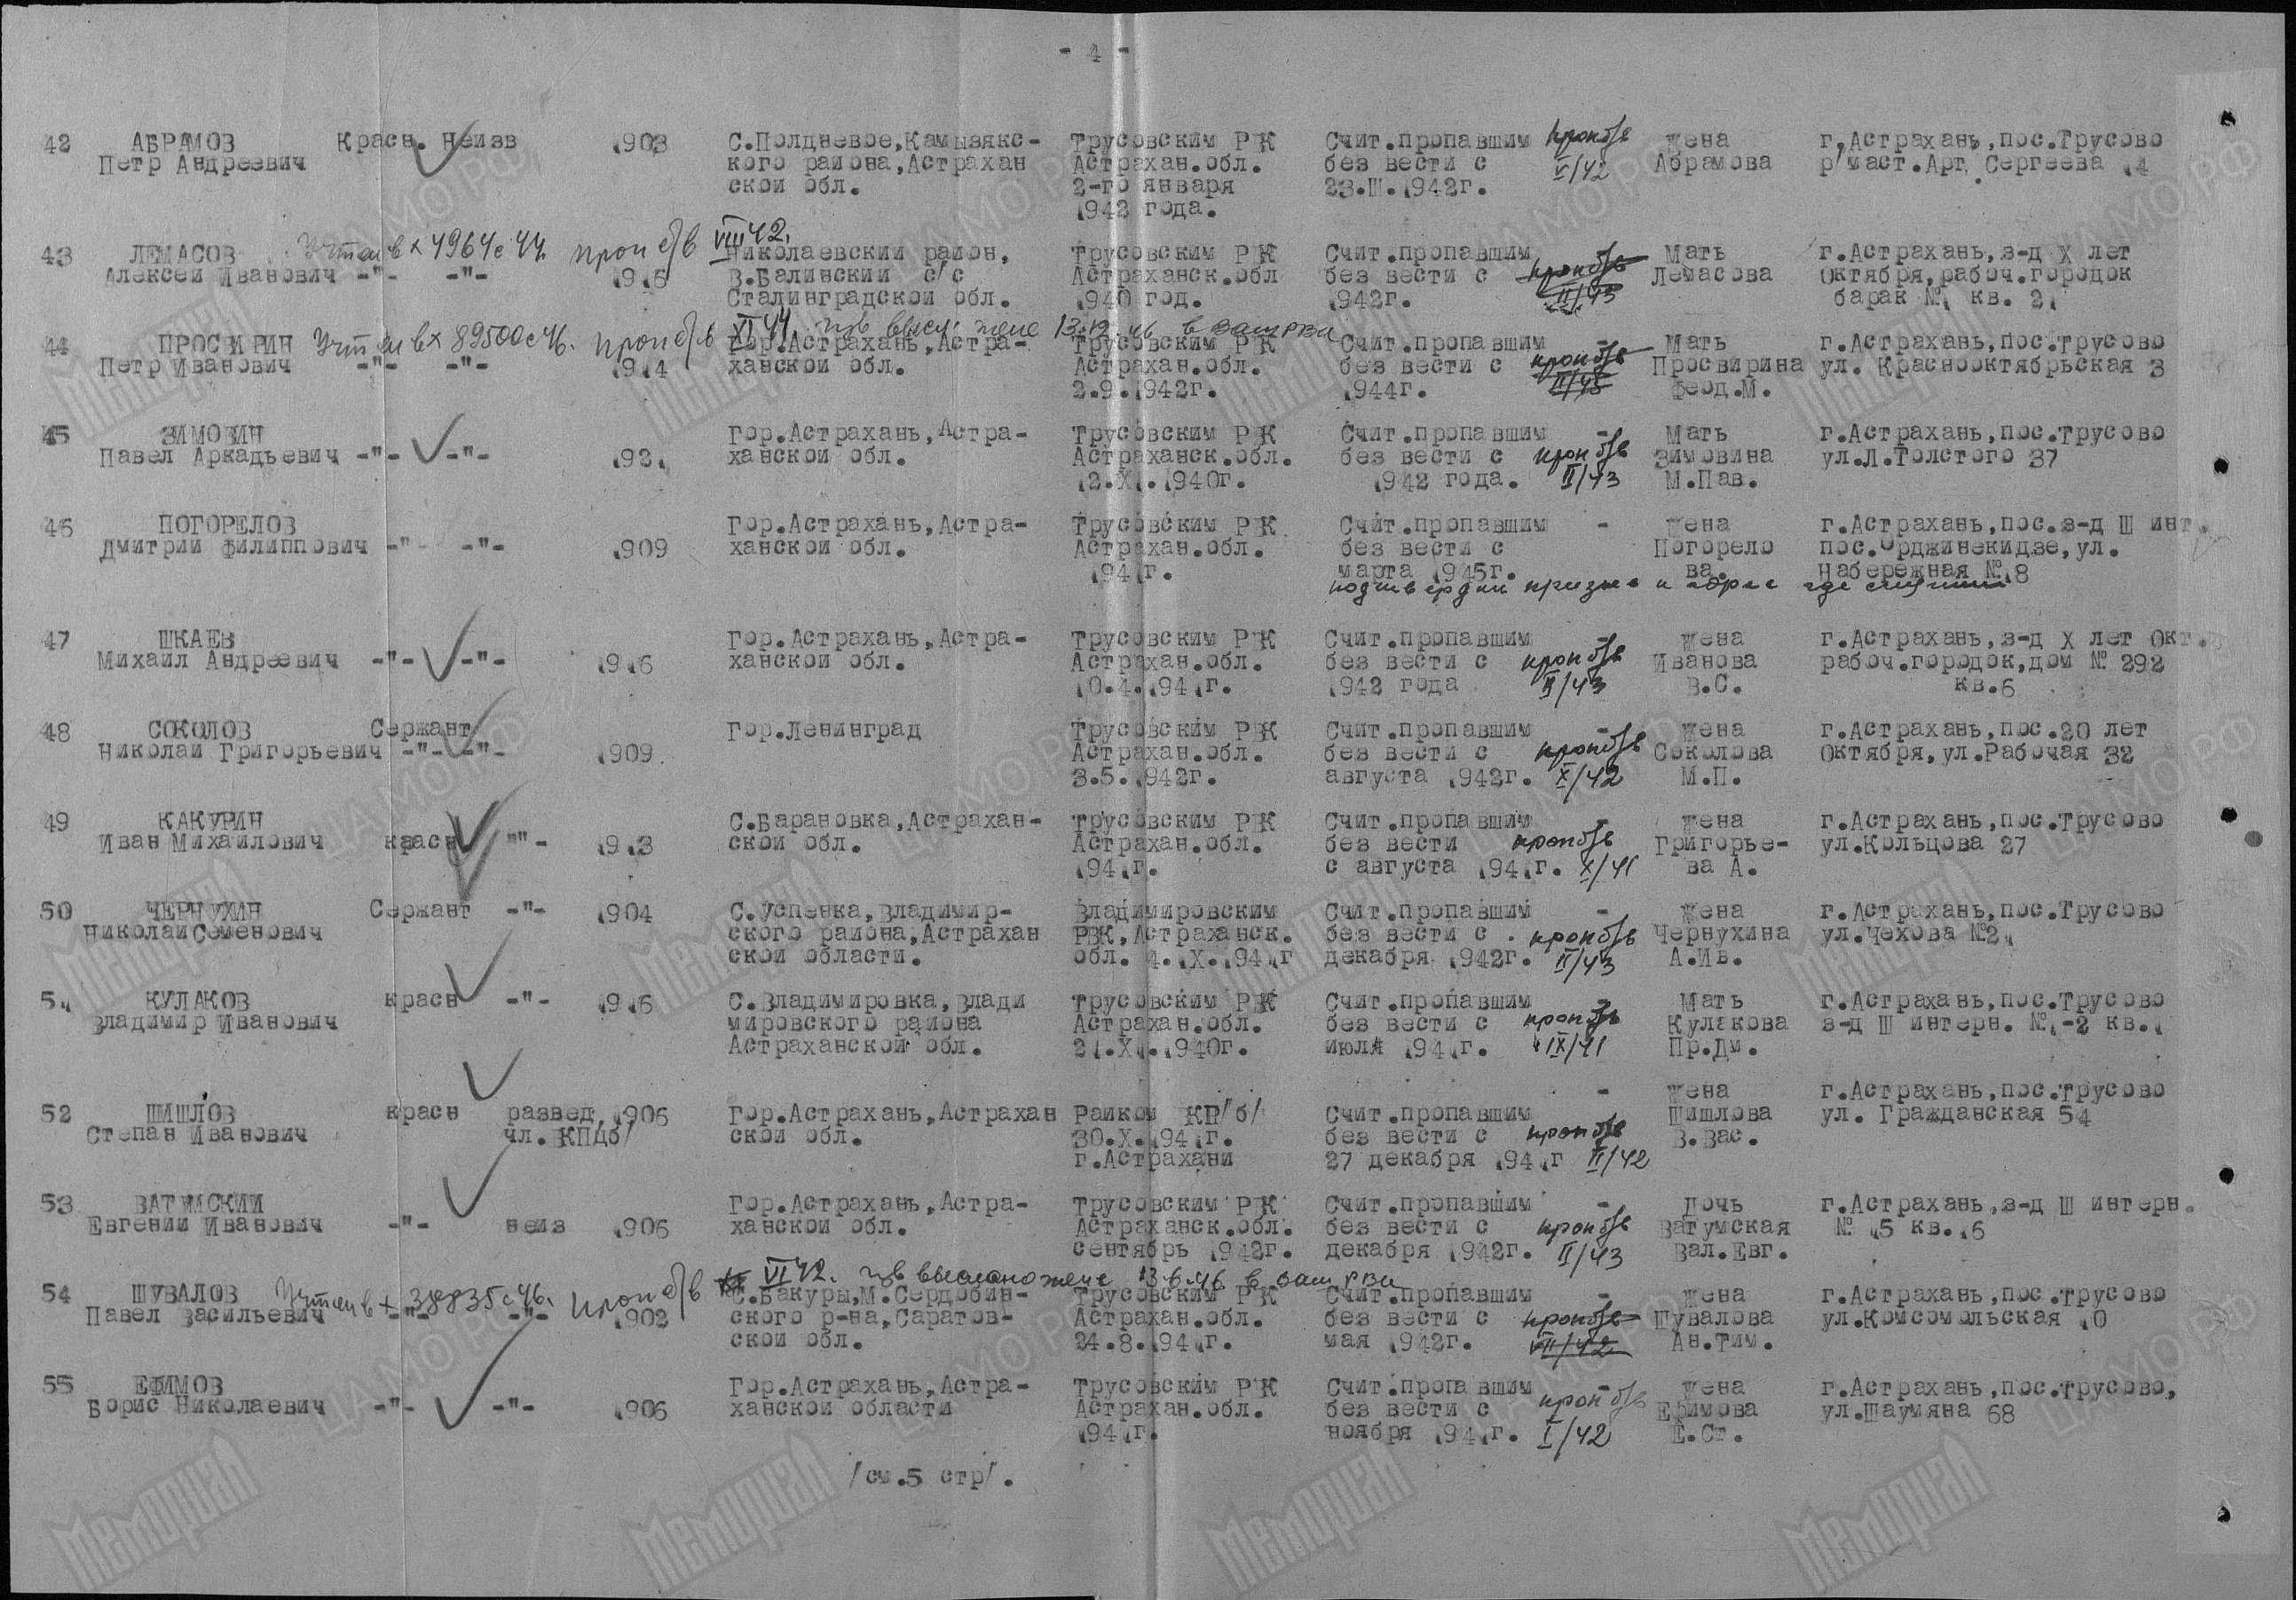 - 4 -
42 АБРАМОВ Красн. Неизв 1903 С.Полдневое,Камызякс- Трусовским РВК Счит.пропавшим проп б/в жена г.Астрахань,пос.Трусово
Петр Андреевич кого района,Астрахан Астрахан.обл. без вести с V/42 Абрамова р/маст.Арт. Сергеева 14
ской обл. 2-го января 23.Ш.1942г.
1942 года.
Учтен вх 4964с 44. проп б/в VIII 42.
43 ЛЕМАСОВ Николаевский район, Трусовским РВК Счит.пропавшим Мать г.Астрахань,з-д Х лет
Алексей Иванович -"- -"- 1916 В.Балинский с/с Астраханск.обл без вести с проп б/в Лемасова Октября,рабоч.городок
Сталинградской обл. 1940 год. 1942г. II/43 барак №1 кв. 21
Учтен вх 89500с46. проп б/в XI 44. изв высл. жене 13.12.46 в Заш РВК
44 ПРОСВИРИН Гор.Астрахань,Астра- Трусовским РВК Счит.пропавшим - Мать г.Астрахань,пос.Трусово
Петр Иванович -"- -"- 1914 ханской обл. Астрахан.обл. без вести с проп б/в Просвирина ул. Краснооктябрьская 3
2.9.1942г. 1944г. II/45 Феод.М.
45 ЗИМОВИН Гор.Астрахань,Астра- Трусовским РВК Счит.пропавшим - Мать г.Астрахань,пос.Трусово
Павел Аркадьевич -"- -"- 1921 ханской обл. Астраханск.обл. без вести с проп б/в Зимовина ул.Л.Толстого 37
12.Х1.1940г. 1942 года. II/43 М.Пав.
46 ПОГОРЕЛОВ Гор.Астрахань,Астра- Трусовским РВК Счит.пропавшим - жена г.Астрахань,пос.з-д Ш инт.
Дмитрий Филиппович -"- -"- 1909 ханской обл. Астрахан.обл. без вести с Погорело пос.Орджинекидзе,ул.
1941г. марта 1945г. ва. Набережная №18
подтвердить призыв и адрес где служил
47 ШКАЕВ Гор.Астрахань,Астра- Трусовским РВК Счит.пропавшим - жена г.Астрахань,з-д Х лет Окт.
Михаил Андреевич -"- -"- 1916 ханской обл. Астрахан.обл. без вести с проп б/в Иванова рабоч.городок,дом № 292
10.4.1941г. 1942 года II/43 В.С. кв.6
48 СОКОЛОВ Сержант Гор.Ленинград Трусовским РВК Счит.пропавшим - жена г.Астрахань,пос.20 лет
Николай Григорьевич -"- -"- 1909 Астрахан.обл. без вести с проп б/в Соколова Октября,ул.Рабочая 32
3.5.1942г. августа 1942г. X/42 М.П.
49 КАКУРИН С.Барановка,Астрахан- Трусовским РВК Счит.пропавшим - жена г.Астрахань,пос.Трусово
Иван Михайлович красн -"- 1913 ской обл. Астрахан.обл. без вести проп б/в Григорье- ул.Кольцова 27
1941г. с августа 1941г. X/41 ва А.
50 ЧЕРНУХИН Сержант -"- 1904 С.Успенка,Владимир- Владимировским Счит.пропавшим - жена г.Астрахань,пос.Трусово
Николай Семенович ского района,Астрахан РВК,Астраханск. без вести с проп б/в Чернухина ул.Чехова №21
ской области. обл. 4.1Х.1941г декабря 1942г. II/43 А.Ив.
51 КУЛАКОВ красн -"- 1916 С.Владимировка,Влади Трусовским РВК Счит.пропавшим - Мать г.Астрахань,пос.Трусово
Владимир Иванович мировского района Астрахан.обл. без вести с проп б/в Кулакова з-д Ш интерн. №1-2 кв.1
Астраханской обл. 21.Х1.1940г. июля 1941г. IX/41 Пр.Дм.
- жена г.Астрахань,пос.Трусово
52 ШИШЛОВ красн развед. 1906 Гор.Астрахань,Астрахан Райком КП/б/ Счит.пропавшим Шишлова ул. Гражданская 54
Степан Иванович чл.ВКП/б/ ской обл. 30.Х.1941г. без вести с проп б/в В.Вас.
г.Астрахани 27 декабря 1941г II/42
53 ВАТУМСКИЙ Гор.Астрахань,Астра- Трусовским РВК Счит.пропавшим - Дочь г.Астрахань,з-д Ш интерн.
Евгений Иванович -"- неиз 1906 ханской обл. Астраханск.обл. без вести с проп б/в Ватумская № 15 кв.16
сентябрь 1942г. декабря 1942г. II/43 Вал.Евг.
Учтен вх 38835с46. проп б/в VI 42. изв выслано жене 13.6.46 в Заш РВК
54 ШУВАЛОВ С.Бакуры,М.Сердобин- Трусовским РВК Счит.пропавшим - жена г.Астрахань,пос.Трусово
Павел Васильевич -"- -"- 1902 ского р-на,Саратов- Астрахан.обл. без вести с проп б/в Шувалова ул.Комсомольская 10
ской обл. 24.8.1941г. мая 1942г. VII/42 Ан.Тим.
55 ЕФИМОВ Гор.Астрахань,Астра- Трусовским РВК Счит.пропавшим - жена г.Астрахань,пос.Трусово,
Борис Николаевич -"- -"- 1906 ханской области Астрахан.обл. без вести с проп б/в Ефимова ул.Шаумяна 68
1941г. ноября 1941г. I/42 Е.Ст.
/см.5 стр/.